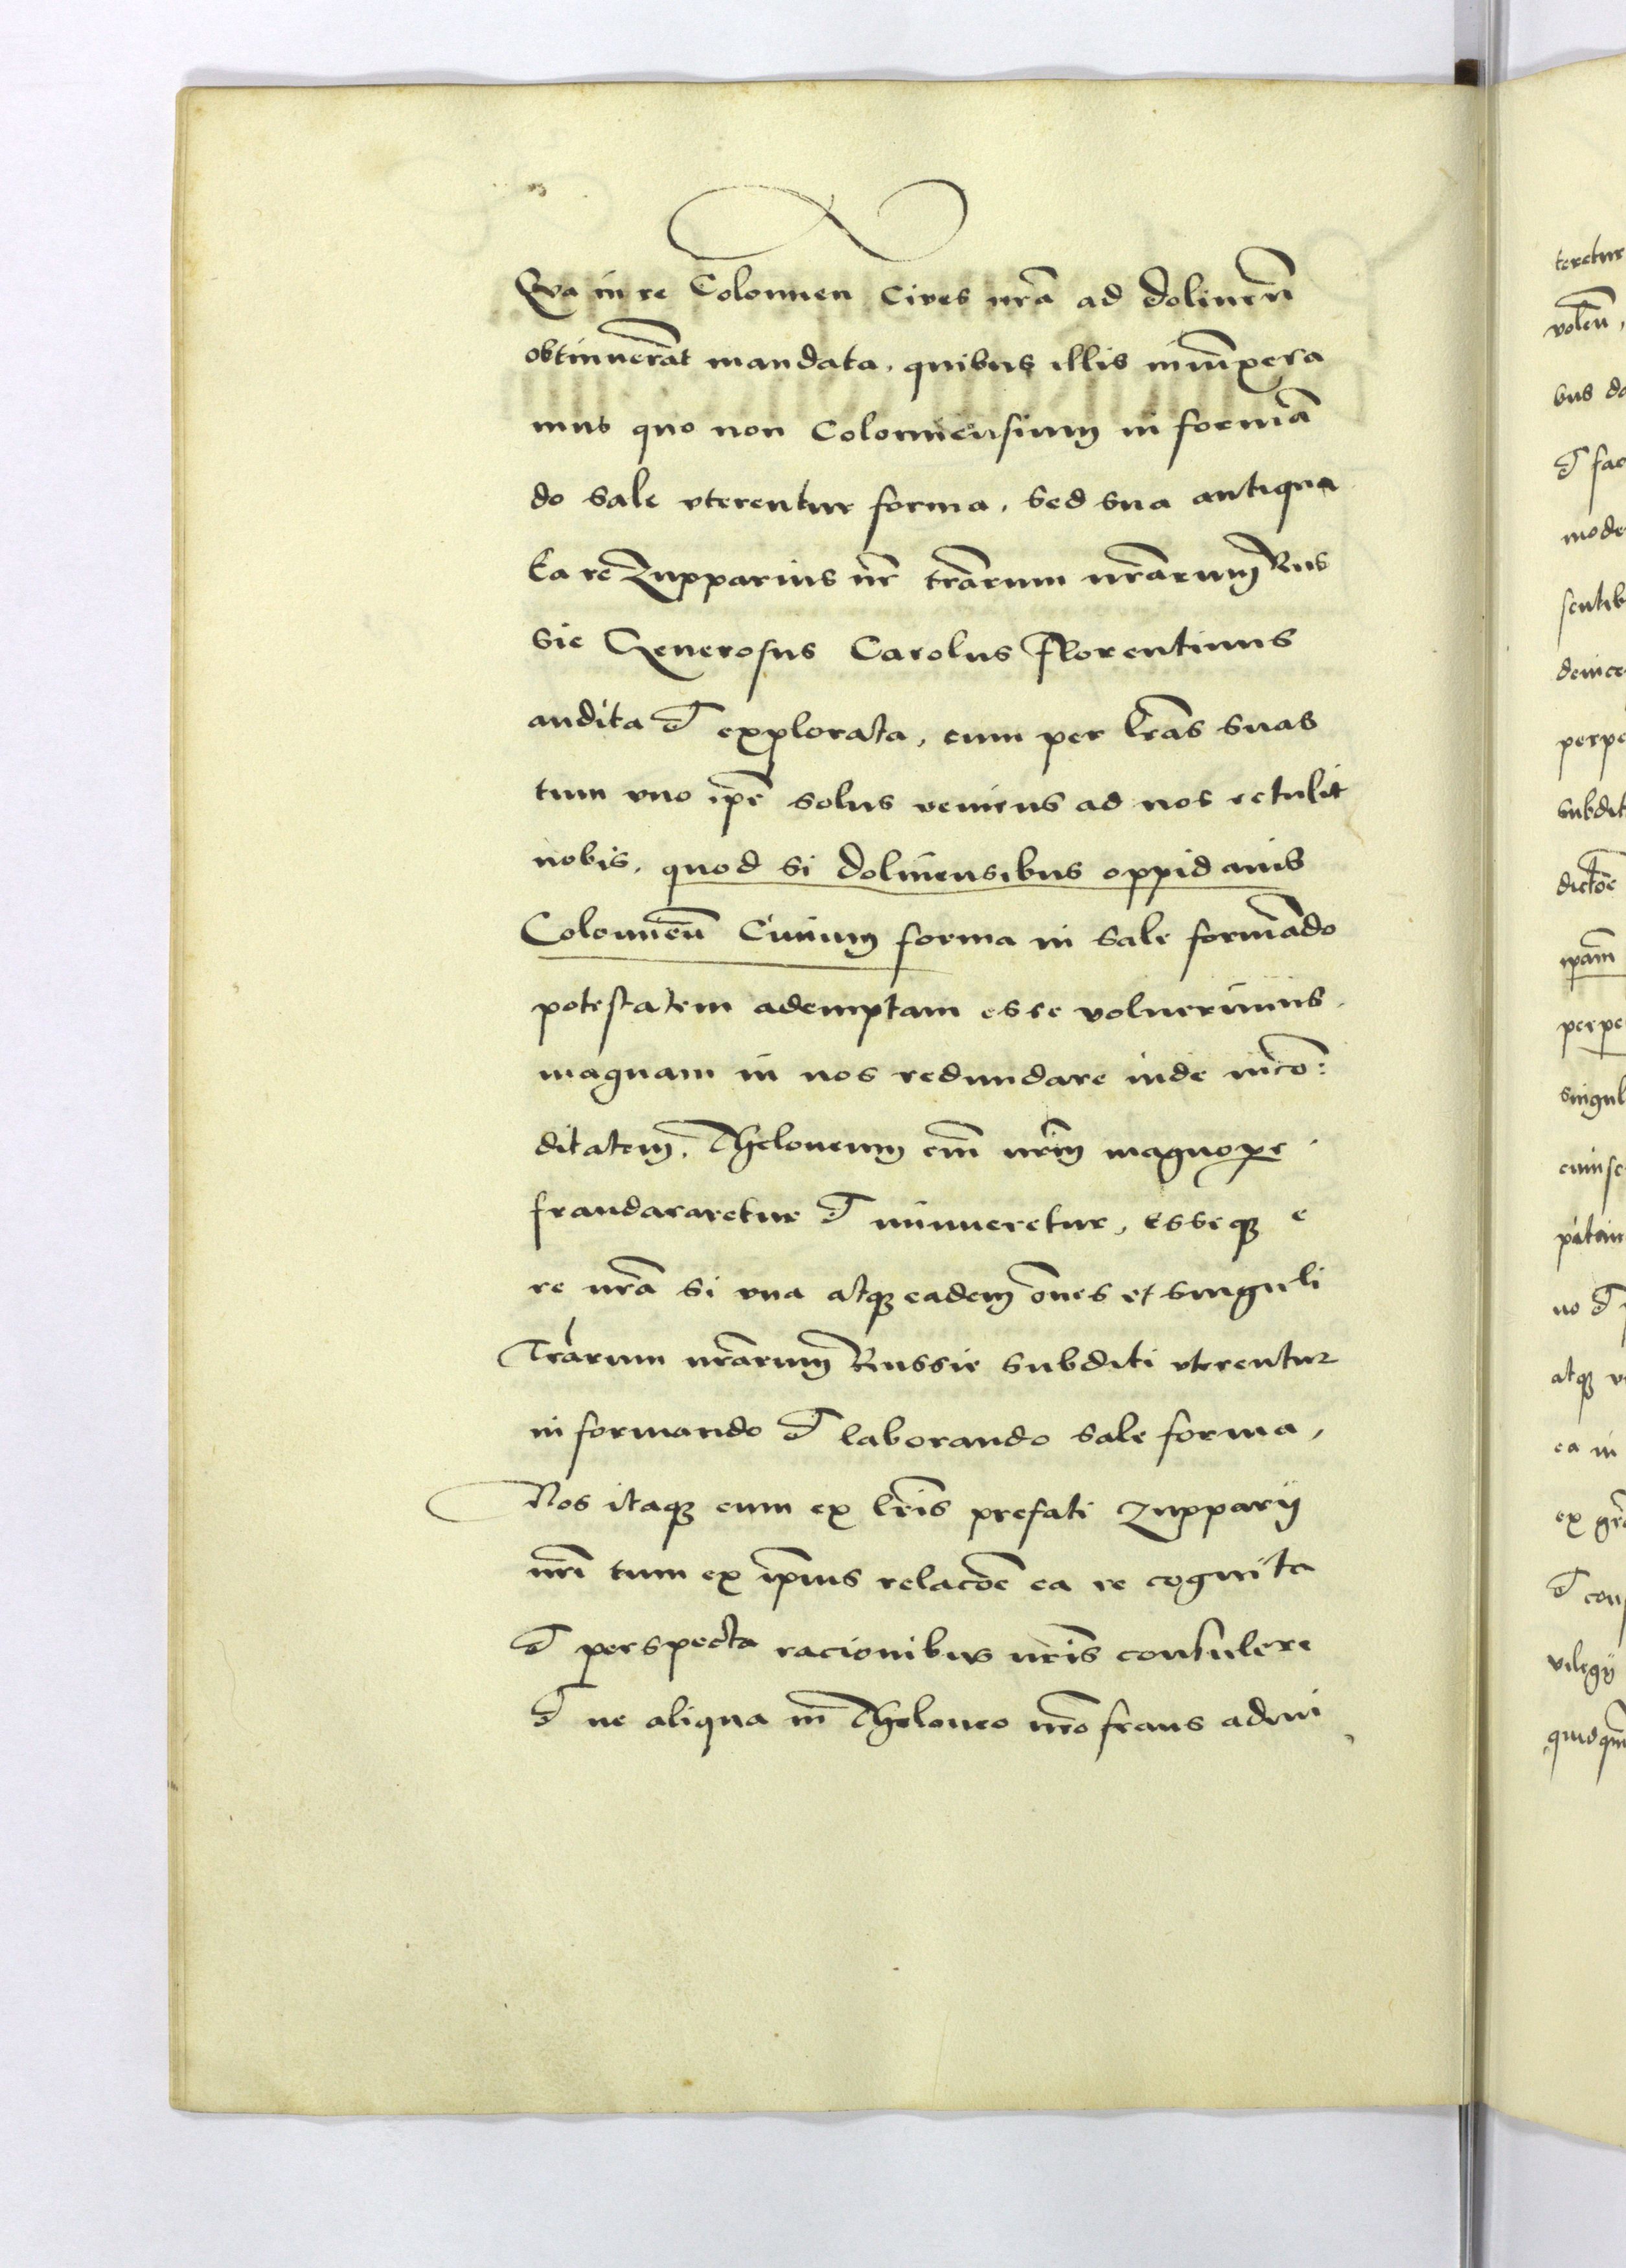 Qva in re Colomien Cives nrā ad dolineñ
obtinuerāt mandata, quibus illis inīupera
mus quo non Colomiensium in formā
do sale vterentur forma, sed sua antiqua
Ea re Zupparius nr̄ trārum nrārum Rus
sie Generosus Carolus Florentinus
audita et explorata, cum per lrās suas
tum vno ip̄e solus veniens ad nos retulit
nobis, quod si dolinensibus oppidanis
Colomieñ Ciuium forma in sale formādo
potestatem ademptam esse voluerimus,
magnam in nos redundare inde incō:
ditatem, Theloneum em̄ nrm̄ magnope
fraudararetur et minueretur, Esseqz e
re nrā si vna atqz eadem ōnes et singuli
Trārum nrārum Russie subditi vterentur
in formando et laborando sale forma,
Nos itaqz cum ex lrīs prefati Zupparij
nrī tum ex ip̄ius relacōe ea re cognita
et perspecta racionibus nrīs consulere
et ne aliqua in Theloneo nrō fraus admi
teretur
voleñ,
bus do
et fac
mode
sentib
deince
perpe
subdit
dictōe
ipām
perpe
singul
no et
atqz
ea in
ex
et con
vilegij